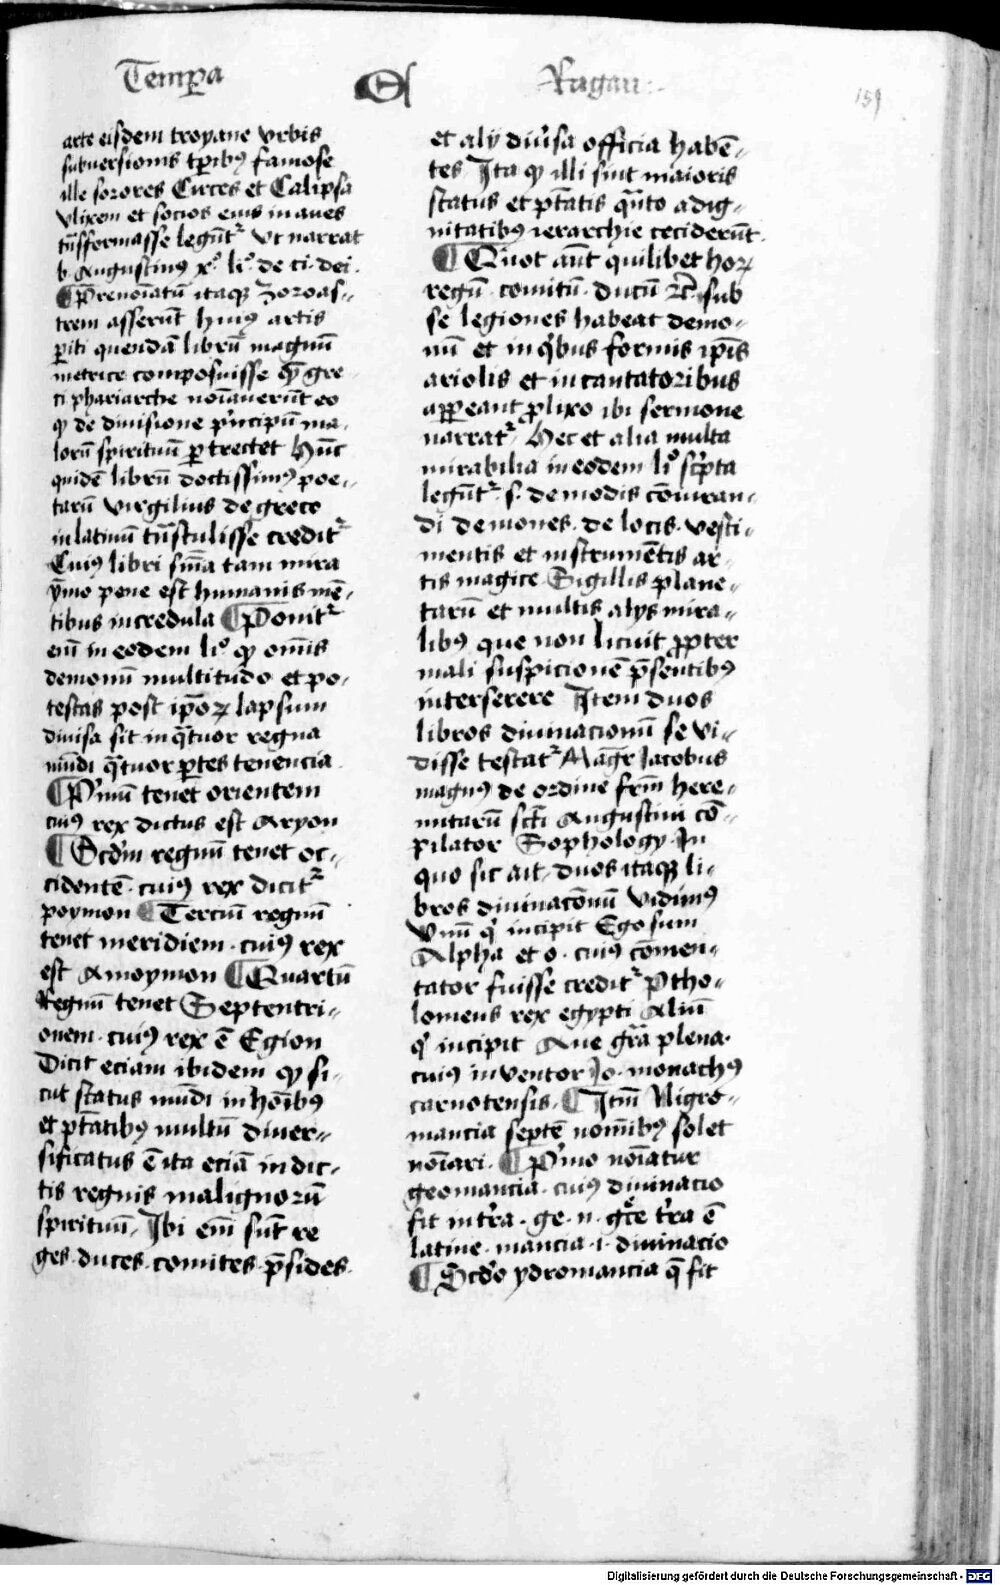 Temp̄a
Ragau
159
arte eisdem troyane vrbis
subversionis tp̄ibꝰ famose
ille sorores Circes et Calipsa
vlixem et socios eius in aues
tn̄sformasse legūtᷣ vt narrat
b. Augustinꝰ xº. liº. de ci. dei.
¶ Prenoīatū itaqꝫ Zoroas-
trem asserūt huiꝰ artis
ꝑiti quendā librū magnū
metrice composuisse qē gre-
ci phariarche noīauerūt eo
ꝙ de diuisione pͥncipū ma-
lorū spirituū ꝑtrectet Hūc
quidē librū doctissimꝰ poe-
tarū virgilius de greco
in latinū tn̄stulisse creditᷣ
Cuiꝰ libri sūma tam mira
ymo pene est humanis mē-
tibus incredula ¶ Ponitᷣ
enī in eodem liº ꝙ oīnis
demonū multitudo et po-
testas post ip̄oꝝ lapsum
diuisa sit in qᷓtuor regna
mūdi qᷓtuor ꝑtes tenencia.
¶ Pͥmū tenet orientem
cuiꝰ rex dictus est Aryon
¶ Scd̄m regnū tenet oc-
cidentē. cuiꝰ rex dicitᷣ
poymon ¶ Terciū regnū
tenet meridiem. cuiꝰ rex
est Amoymon ¶ Quartū
Regnū tenet Septentri-
onem. cuiꝰ rex ē Egion
Dicit eciam ibidem ꝙ si-
cut status mūdi in hoībꝰ
et pt̄atibꝰ multū diuer-
sificatus ē ita eciā in dic-
tis regnis malignorū
spirituū. Ibi enī sūt re
ges. duces. comites. p̄sides.
et alij diūsa officia habē-
tes Ita ꝙ illi sint maioris
status et pt̄atis qᷓnto a dig-
nitatibꝰ ierarchie ceciderūt.
¶ Quot aūt quilibet hoꝝ
regū. comitū. ducū ⁊c̄ sub
se legiones habeat demo-
nū et in qͥbus formis ip̄is
ariolis et incantatoribus
apꝑeant ꝓlixo ibi sermone
narratᷣ. Hec et alia multa
mirabilia in eodem liº scͥpta
legūtᷣ. s. de modis cōiuran-
di demones. de locis. vesti-
mentis et instrumētis ar-
tis magice. Sigillis plane-
tarū et multis alijs mira-
libꝰ que non licuit ꝓpter
mali suspicionē p̄sentibꝰ
interserere Item duos
libros diuinacionū se vi-
disse testatᷣ Magr̄ Jacobus
magnꝰ de ordine frm̄ here-
mitarū sc̄ti Augustini cō-
pilator Sophology. In
quo sic ait. duos itaqꝫ li-
bros diuinacōnū vidimꝰ
Vnū qͥ incipit Ego sum
Alpha et o. cuiꝰ cōmen-
tator fuisse creditᷣ Ptho-
lomeus rex egypti Aliū
qͥ incipit Aue gr̄a plena.
cuiꝰ inventor Jo. monachꝰ
carnotensis. ¶ Itm̄ Nigro-
mancia septē noīībꝰ solet
noīari. ¶ Pͥmo noīatur
geomancia. cuiꝰ diuinacio
fit in tr̄a. ge. n. gͬce tr̄a ē
latine. mancia. i. diuinacio
¶ Scd̄o ydromancia qᷓ fit
Digitalisierung gefördert durch die Deutsche Forschungsgemeinschaft - DFG